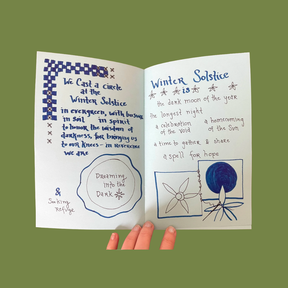 We Cast a circle
at the
Winter Solstice
in evergreen, with
in soil in spirit
to honor the wisdom of
darkness, for bringing us
to our knees - in reverence
we are
Dreaming
into the
Dark
&
Seeking
Refuge
Winter Solstice
is
the dark moon of the year
the longest night
a celebration
of the void
a homecoming
of the Sun
a time to gather & share
a spell for hope